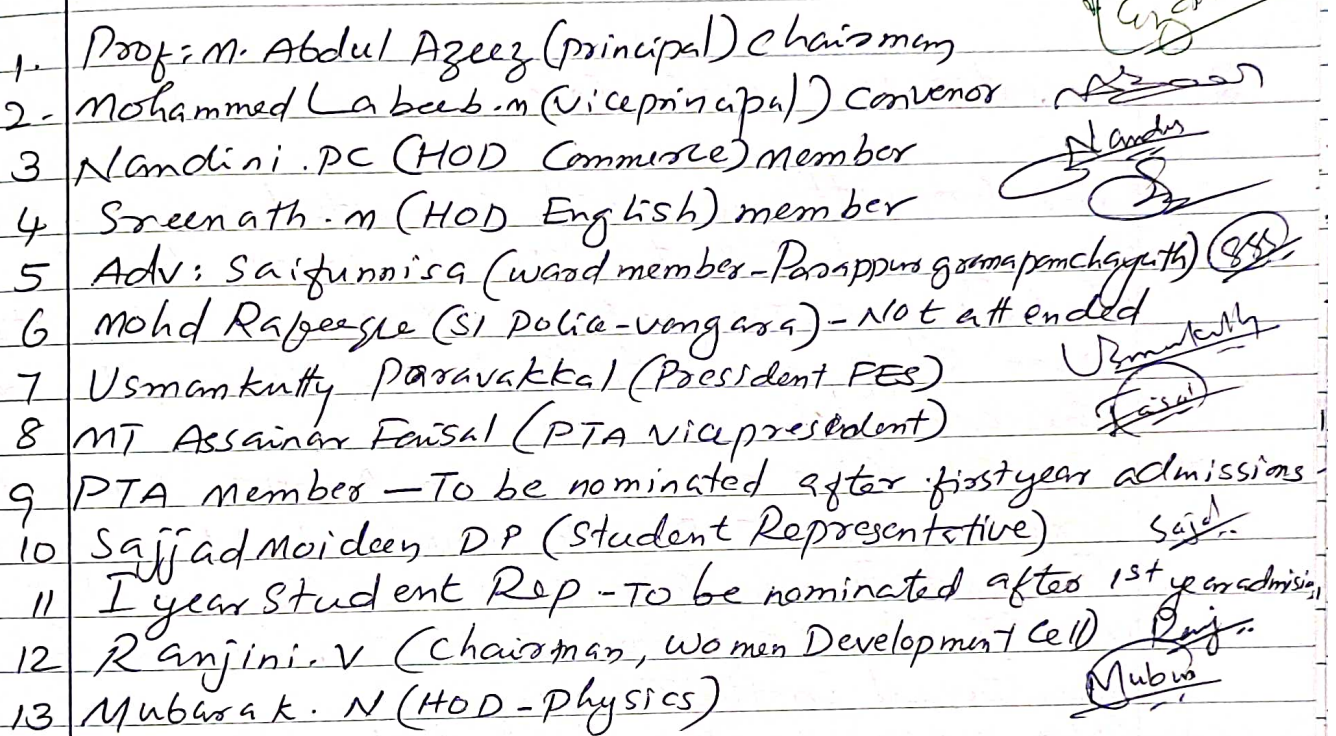 1. Prof: M. Abdul Azeez (principal) Chairman
2. Mohammed Labeeb.m (viceprincipal) Convenor
3 Nandini.PC (HOD Commerce) member Nandus
4 Sreenath.m (HOD English) member
5 Adv: Saifunnisa (ward member-Parappur gramapanchayath)
6 Mohd Rafeeque (SI Police-vengara)-Not attended
7 Usmankutty Paravakkal (President PES) Usmankutty
8 MT Assainar Faisal (PTA Vicepresident) Faisal
9 PTA Member - To be nominated after first year admissions
10 Sajjad Moideen DP (Student Representative) Sajd
11 I year Student Rep - To be nominated after 1st year admission
12 Ranjini.V (Chairman, Women Development Cell) Ranj
13 Mubarak.N (HOD-Physics) Mubar